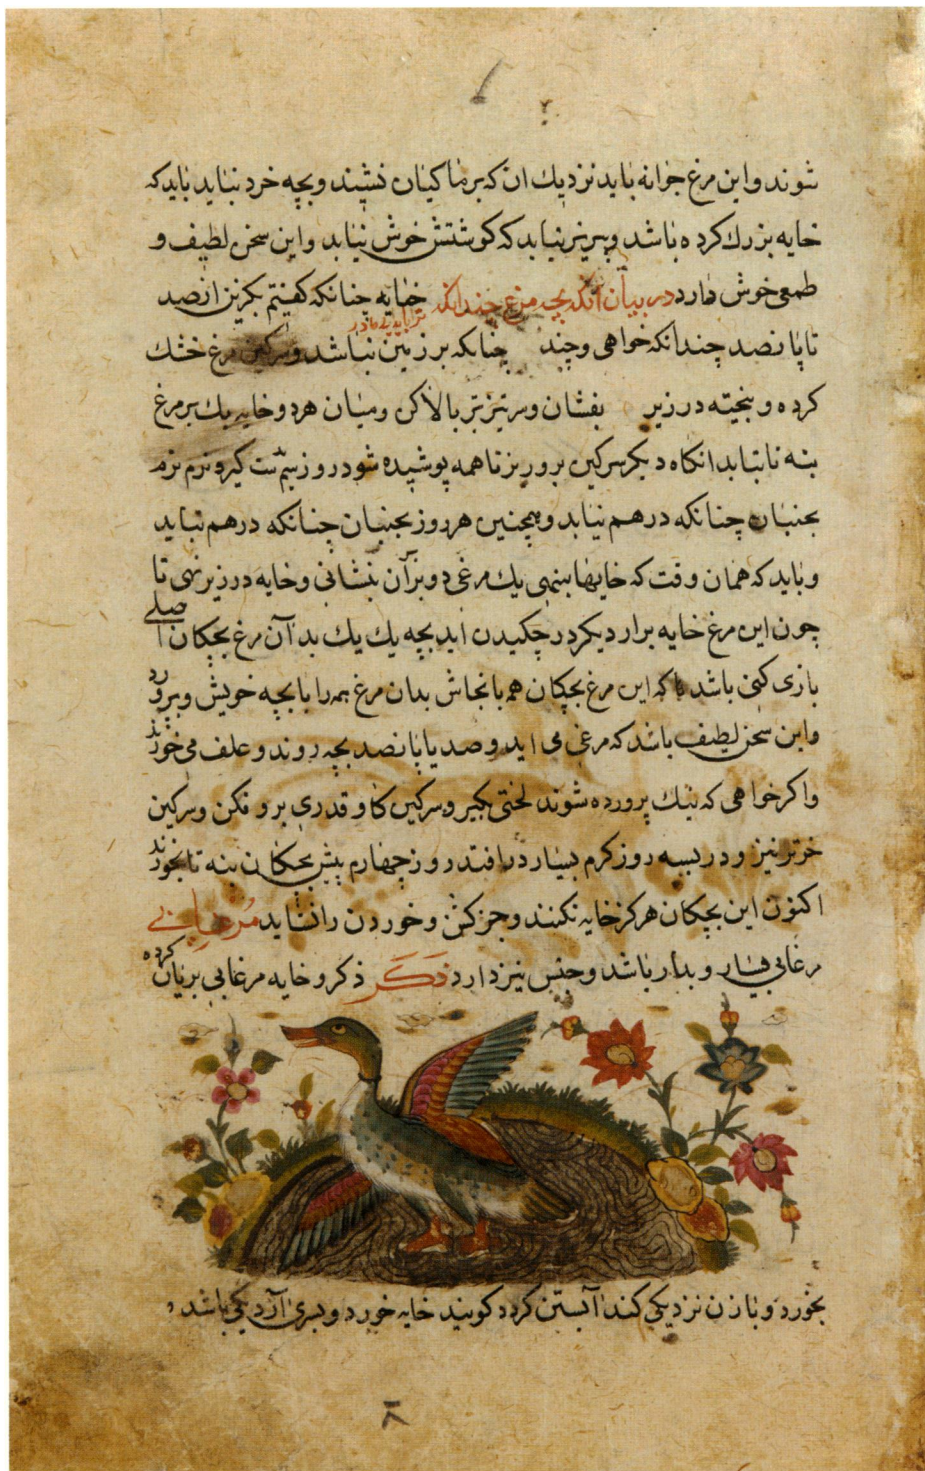 شوند و این مرغ جوانه باید نزدیك ان که بر ماکیان نشیند و بچه خرد نباید باید که
خایه بزرك کرده باشد و پیر نیز نباید که کوشتش خوش نیاید و این سخن لطیف و
طمعی خوش دارد در بیان آنکه بچه مرغ چندانکه خایه چنانکه کفتم بکزین از صد
ترا باید بی مادر
تا پانصد چندانکه خواهی و چند چنانکه بر زمین نباشد و سرکین مرغ خشك
کرده و بیخته در زیر بفشان و سر تیزتر بالا کن و میان هر دو خایه یك پر مرغ
بنه تا نتابد انکاه دیکر سرکین برو ریز تا همه پوشیده شود روز بیست کیرد نرم نرم
بجنبان چنانکه در هم نیابد و همچنین هر روز بجنبان چنانکه در هم نیاید
و باید که همان وقت که خایها بنهی یك مرغی دو بر آن بنشانی و خایه در زیر نهی تا
چون این مرغ خایه برارد دیکر در چکیدن اید بچه یك یك بد آن مرغ بچکان اصلی
بازی کنی باشد تا که این مرغ بچکان هم بانجاش بدان مرغ همه را با بچه خویش و بپرورد
و این سخن لطیف باشد که مرغی می اید و صد یا پانصد بچه روند و علف می خورند
و اکر خواهی که نیك پرورده شوند لختی بکیر و سرکین کاو قدری برو فکن و سرکین
خر تر نیز و در بسه روز کرم بسیار در افتد روز چهارم پیش بچکان بنه تا بخورند
اکنون این بچکان هرکز خایه نکنند و جز کشتن و خوردن را نشاید مرغابی
مرغابی بسیار و بدار باشد و جنس نیز دارد ذکر ذکر و خایه مرغابی بریان کرده
بخورد و با زن نزدیکی کند آبستن کردد کویند خایه خورد و بسری آرد نیکی باشد
۸